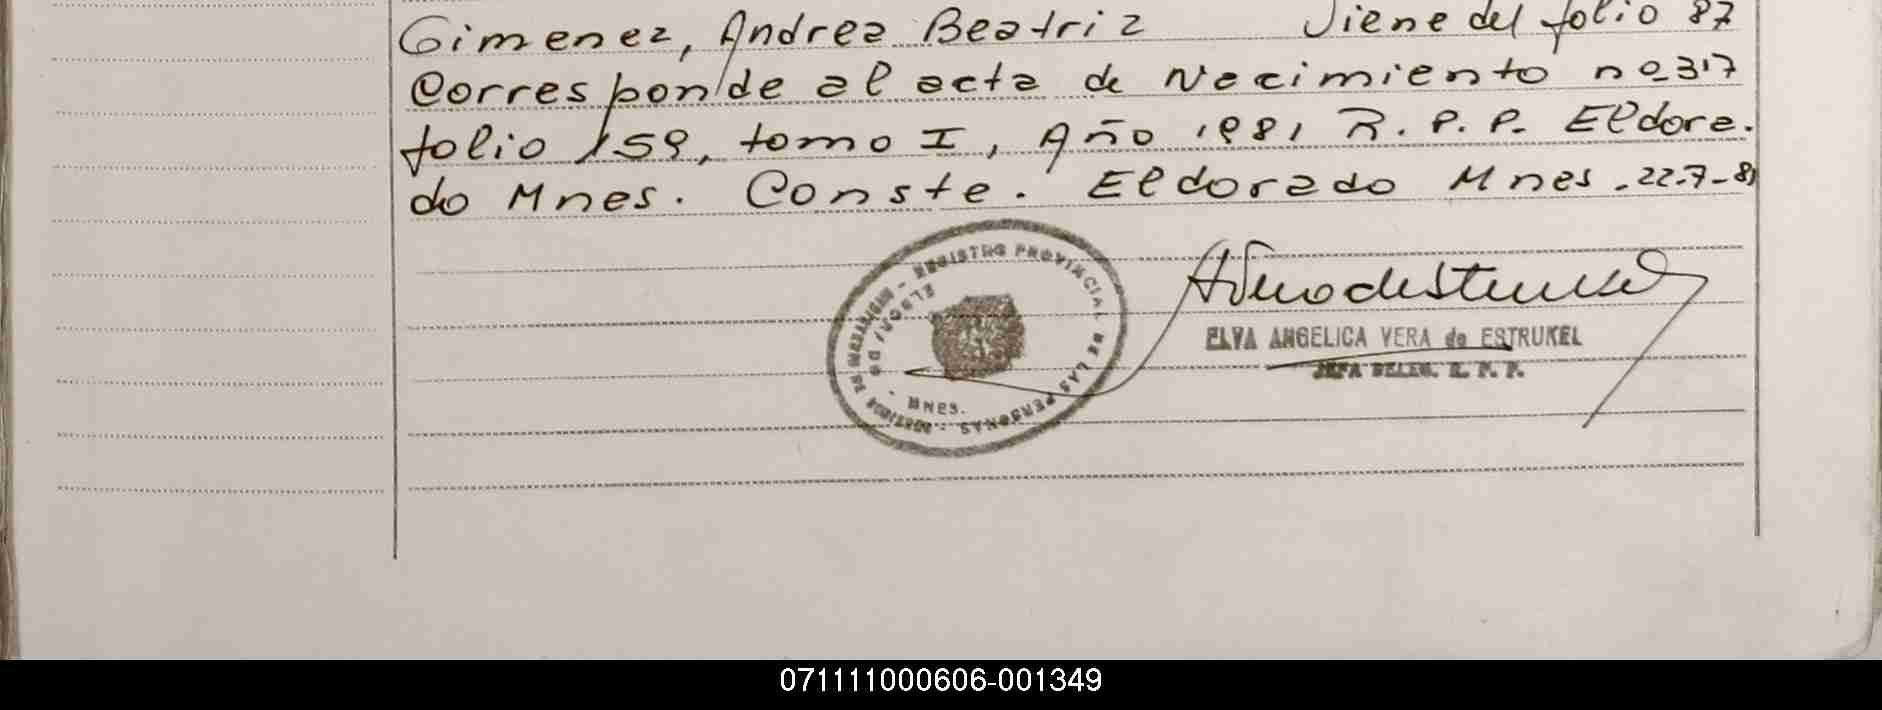 Gimenez, Andrea Beatriz Viene del folio 87
Corresponde al acta de Nacimiento nº 317
folio 159, tomo I, Año 1981 R. P. P. Eldora-
do Mnes. Conste. Eldorado Mnes. 22-7-81
REGISTRO PROVINCIAL DE LAS PERSONAS
ELDORADO
MNES.
ELVA ANGELICA VERA de ESTRUKEL
JEFA DELEG. R. P. P.
071111000606-001349